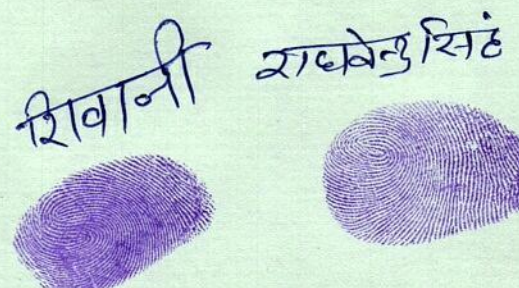 शिवानी
राघवेन्द्र सिहं